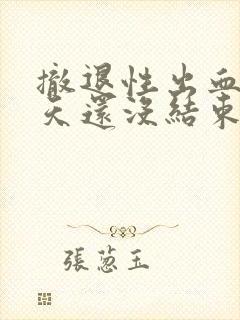 撤退性出血
天還沒結束
張蔥玉